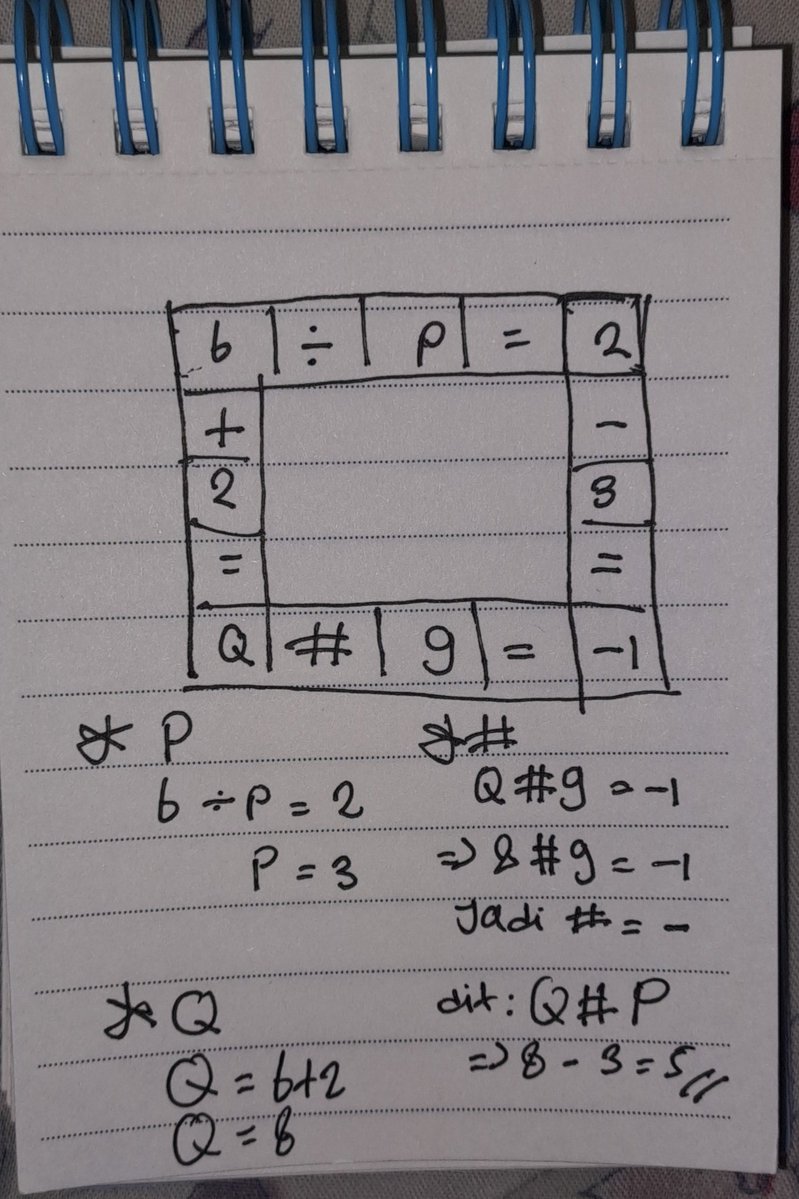 6 ÷ P = 2
+ -
2 3
= =
Q # 9 = -1
* P
6 ÷ P = 2
P = 3
* Q
Q = 6+2
Q = 8
* #
Q # 9 = -1
=> 8 # 9 = -1
Jadi # = -
dit : Q # P
=> 8 - 3 = 5//